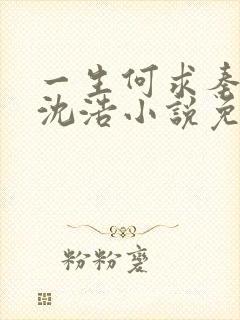 一生何求秦
沈浩小說免
粉粉麼